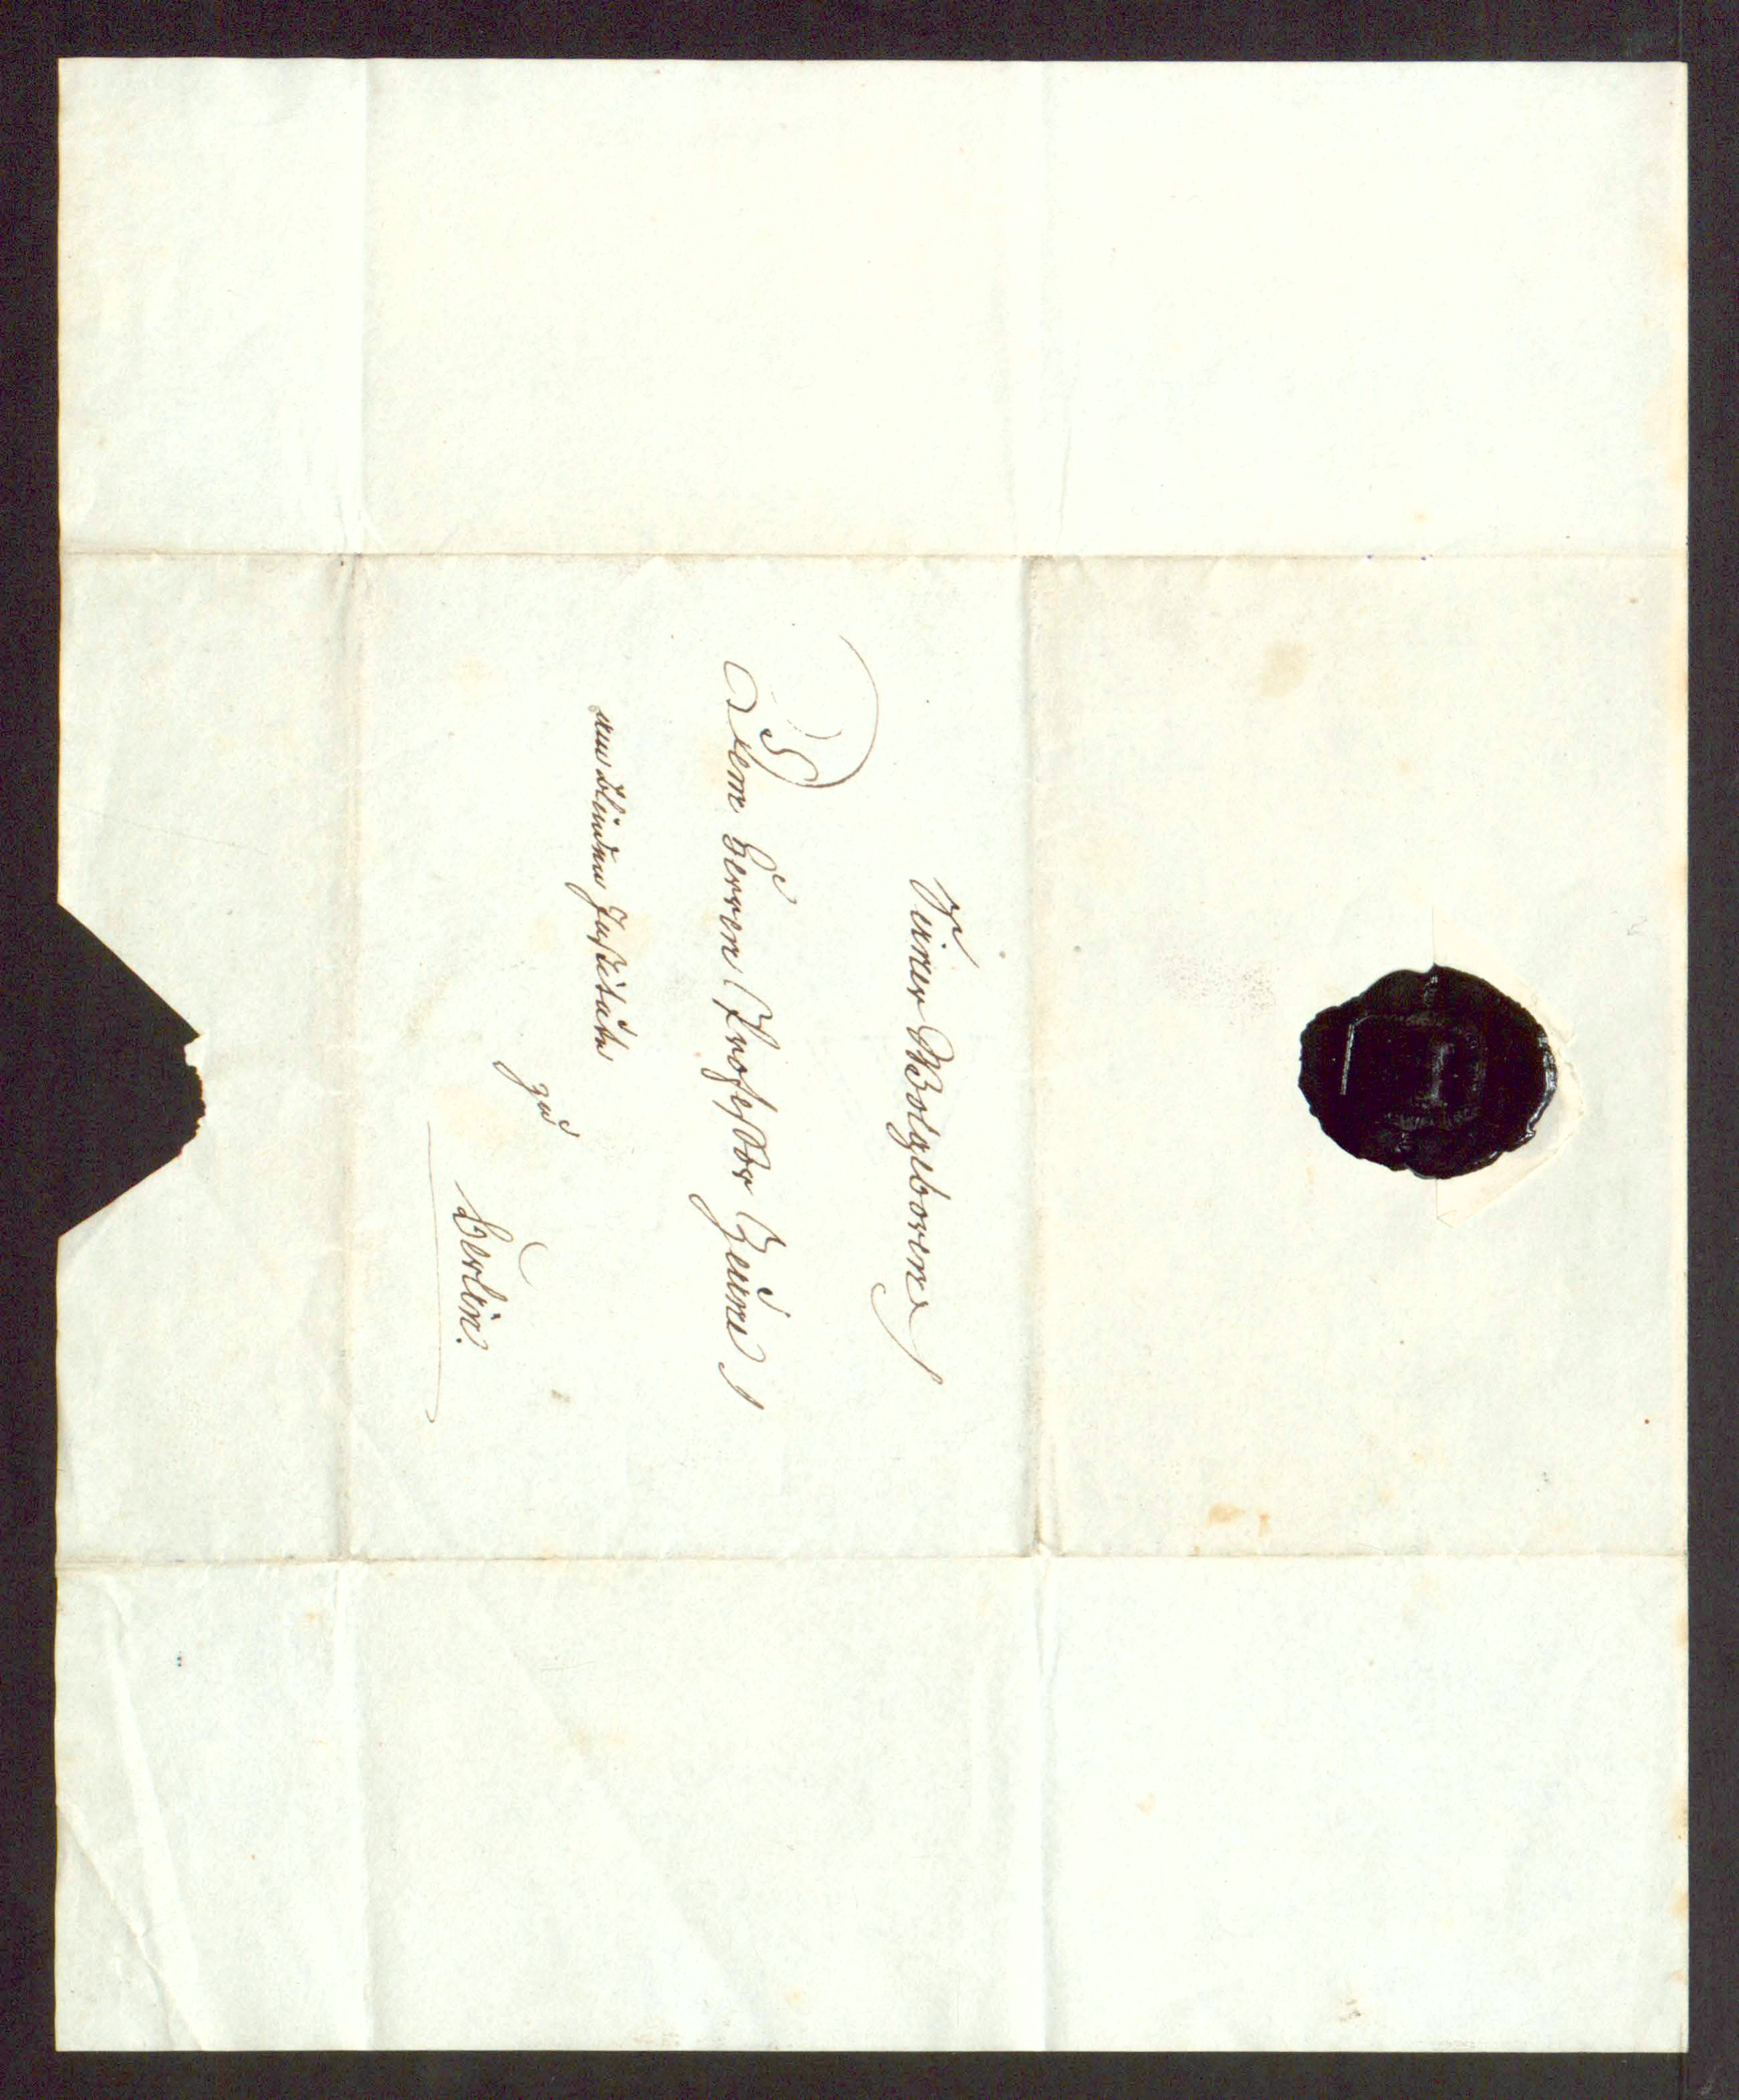 Seiner Wolgeboren
Dem Herren Professor Zeune
am Blinden Institute
zu
Berlin.